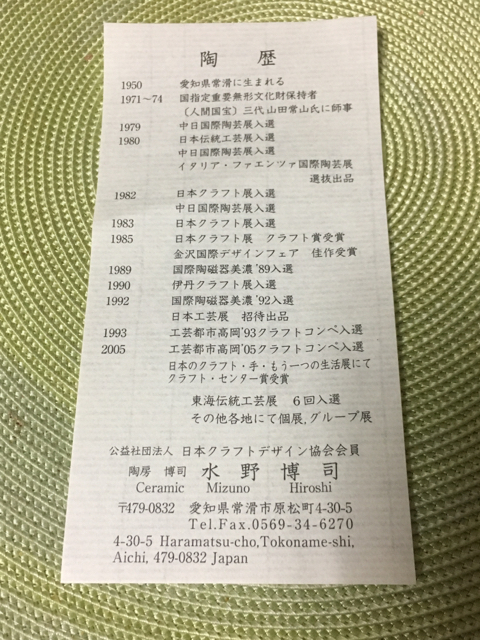 陶 歴
1950 愛知県常滑に生まれる
1971〜74 国指定重要無形文化財保持者
(人間国宝) 三代山田常山氏に師事
1979 中日国際陶芸展入選
1980 日本伝統工芸展入選
中日国際陶芸展入選
イタリア・ファエンツァ国際陶芸展
選抜出品
1982 日本クラフト展入選
中日国際陶芸展入選
1983 日本クラフト展入選
1985 日本クラフト展 クラフト賞受賞
金沢国際デザインフェア 佳作受賞
1989 国際陶磁器美濃'89入選
1990 伊丹クラフト展入選
1992 国際陶磁器美濃'92入選
日本工芸展 招待出品
1993 工芸都市高岡'93クラフトコンペ入選
2005 工芸都市高岡'05クラフトコンペ入選
日本のクラフト・手・もう一つの生活展にて
クラフト・センター賞受賞
東海伝統工芸展 6回入選
その他各地にて個展,グループ展
公益社団法人 日本クラフトデザイン協会会員
陶房 博司 水野博司
Ceramic Mizuno Hiroshi
〒479-0832 愛知県常滑市原松町4-30-5
Tel.Fax.0569-34-6270
4-30-5 Haramatsu-cho,Tokoname-shi,
Aichi, 479-0832 Japan